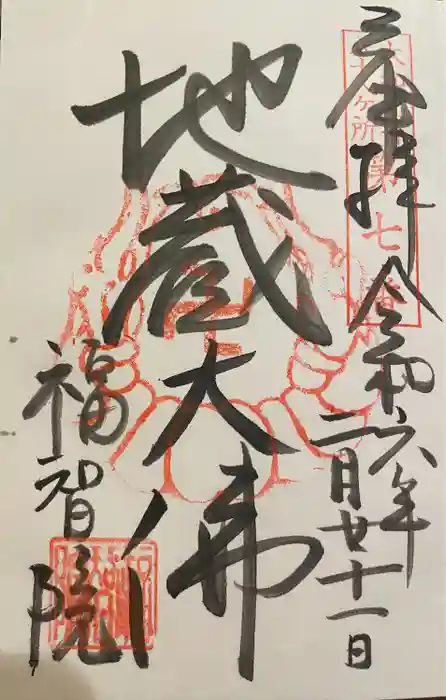 奉拝 令和六年
二月廿十一日
地蔵大佛
福智院
ヶ所
第七